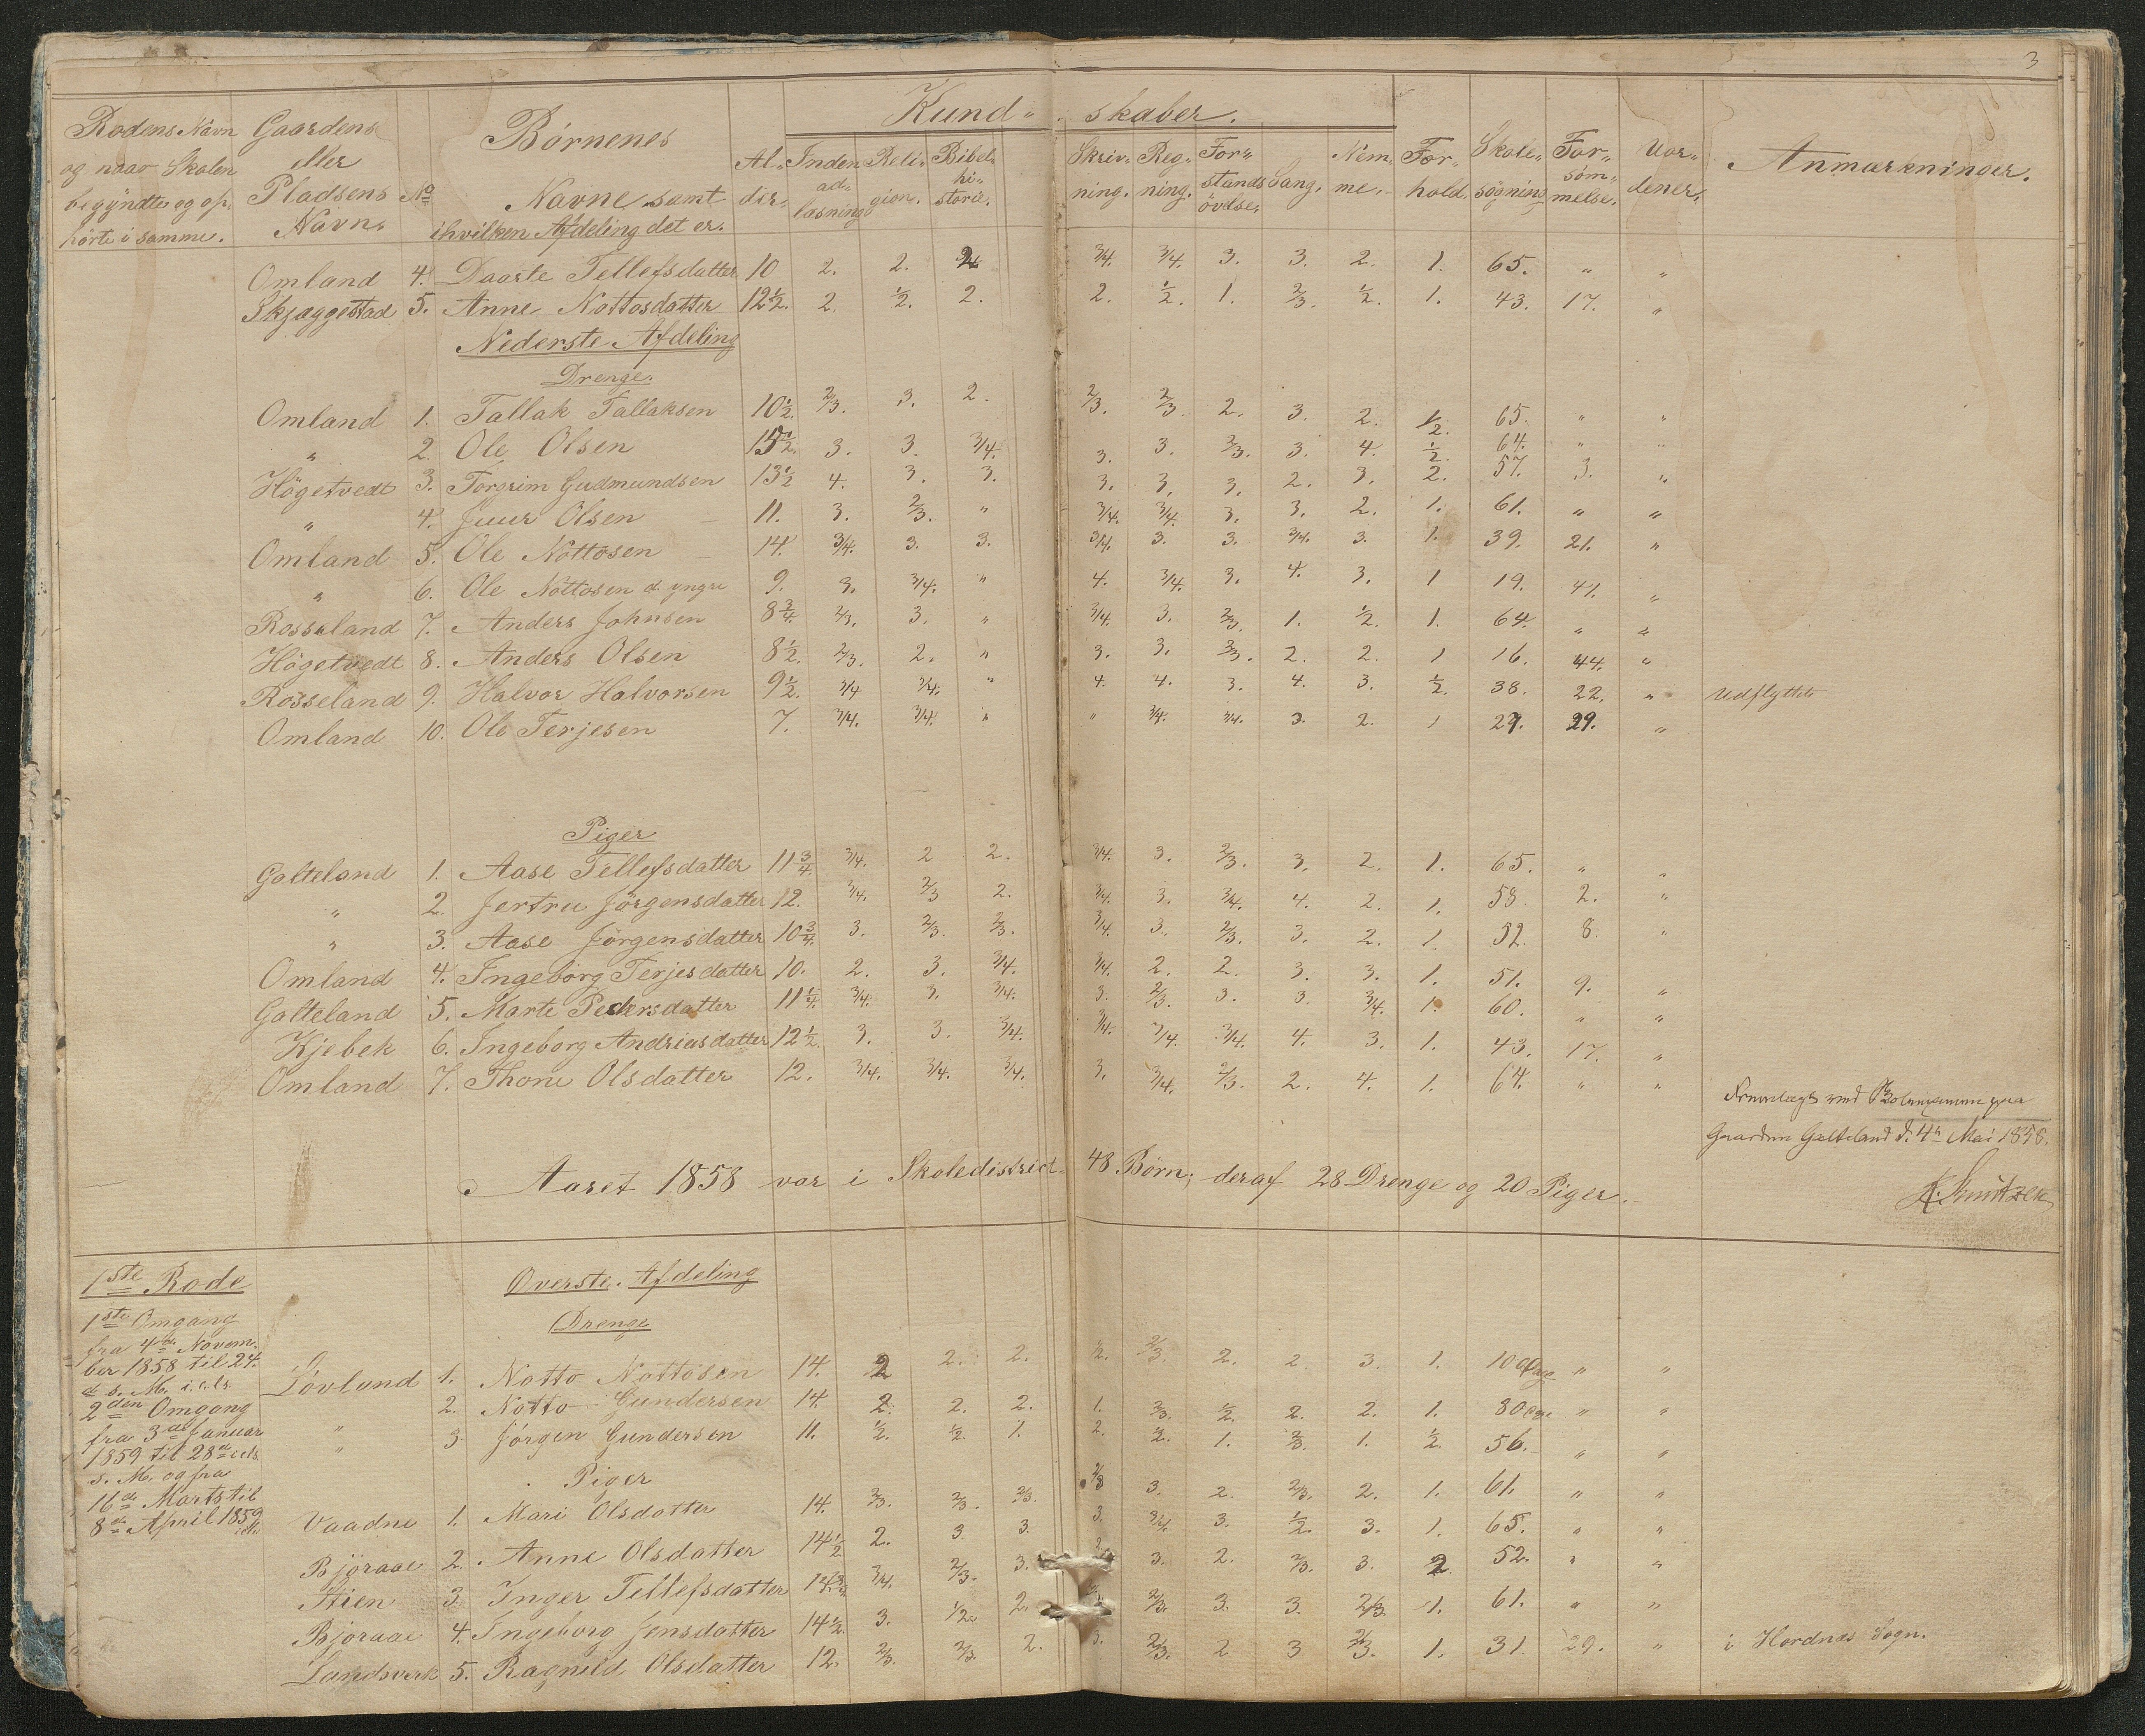 3
Rodens Navn og naar Skolen begyndte og ophörte i samme.
Gaardens eller Pladsens Navn.
No
Börnenes Navne samt ihvilken Afdeling det er.
Kundskaber.
Alder. Indenadlæsning Religion. Bibelhistorie. Skrivning. Regning. Forstandsövelse. Sang. Nemme. Forhold. Skolesögning Forsömmelse. Vordener. Anmærkninger.
Omland 4. Daarte Tellefsdatter 10 2. 2. 3/4. 3/4. 3. 3. 2. 1. 65. " "
Skjæggestad 5. Anne Nottosdatter 12½. 2. ½. 2. 2. ½. 1. 2/3. ½. 1. 43. 17. "
Nederste Afdeling
Drenge.
Omland 1. Tallak Tallaksen 10½. 2/3. 3. 2. 2/3. 2/3. 2. 3. 2. ½. 65. " "
" 2. Ole Olsen 3. 3. 3/4. 3. 3. 2/3. 3. 4. ½. 64. " "
Högetvedt 3. Torgrim Gudmundsen 13½ 4. 3. 3. 3. 3. 3. 2. 3. 2. 57. 3. "
" 4. Juur Olsen 11. 3. 2/3. " 3/4. 3/4. 3. 3. 2. 1. 61. " "
Omland 5. Ole Nottosen 14. 3/4. 3. 3. 3/4. 3. 3. 3/4. 3. 1. 39. 21. "
" 6. Ole Nottosen d. yngre 9. 3. 3/4. " 4. 3/4. 3. 4. 3. 1 19. 41. "
Rosseland 7. Anders Johnsen 8¾. 2/3. 3. " 3/4. 3. 2/3. 1. ½. 1. 64. " "
Högetvedt 8. Anders Olsen 8½. 2/3. 2. " 3. 3. 2/3. 2. 2. 1 16. 44. "
Rosseland 9. Halvor Halvorsen 9½. 3/4 3/4. " 4. 4. 3. 4. 3. ½. 38. 22. " Udflyttet
Omland 10. Ole Terjesen 7. 3/4. 3/4. " " 3/4. 3/4. 3. 2. 1 29. "
Piger
Galteland 1. Aase Tellefsdatter 11¾. 3/4. 2 2. 3/4. 3. 2/3. 3. 2. 1. 65. " "
" 2. Jertru Jörgensdatter 12. 3/4. 2/3 2. 3/4. 3. 3/4. 4. 2. 1. 58. 2. "
" 3. Aase Jörgensdatter 10¾. 3. 2/3. 2/3. 3/4. 3. 2/3. 3. 2. 1. 52. 8. "
Omland 4. Ingeborg Terjesdatter 10. 2. 3. 3/4. 3/4. 2. 2. 3. 3. 1. 51. 9. "
Galteland 5. Marte Pedersdatter 11¼. 3/4. 3. 3/4. 3. 2/3. 3. 3. 3/4. 1. 60. " "
Kjebek 6. Ingeborg Andriasdatter 12½. 3. 3. 3/4. 3/4. 3/4. 3/4. 4. 3. 1. 43. 17. "
Omland 7. Thone Olsdatter 12. 3/4. 3/4. 3/4. 3. 3/4. 2/3. 2. 4. 1. 64. " "
Fremlagt ved paa
Gaarden Galteland d. 4de Mai 1858.
Aaret 1858 var i Skoledistrict 48 Börn, deraf 28 Drenge og 20 Piger.
1ste Rode
1ste Omgang
fra 4de Novem-
ber 1858 til 24.
d. s. M. incls.
2den Omgang
fra 3de Januar
1859 til 28de incls.
s. M. og fra
16de Marts til
8de April 1859
incls.
Överste Afdeling
Drenge
Lövland 1. Notto Nottosen 14. 2 2. 2. ½. 2/3. 2. 2. 3. 1. 100 Dage " "
2. Notto Gundersen 14. 2. 2. 2. 1. 2/3. ½. 2. 2. 1. 80 Dge " "
" 3. Jörgen Gundersen 11. ½. ½. 1. 2. ½. 1. 2/3. 1. ½. 56. " "
Piger
Vaadne 1. Mari Olsdatter 14. 2/3. 2/3. 2/3. 2/3 3. 2. 2/3. 2. 1. 61. " "
Björaae 2. Anne Olsdatter 14½ 2. 3. 3. 3. 3/4. 3. ½. 3. 1. 65. " "
Stien 3. Inger Tellefsdatter 3/4. 2/3. 3. 3. 2. 2/3. 3. 2. 52. " "
Björaae 4. Ingeborg Jensdatter 14½. 3. ½. 2. 2/3. 3. 3. 2/3. 1. 61. " "
Landsverk 5. Ragnild Olsdatter 12. 2/3. 2/3. 2. 3. 2/3. 2 3 2/3. 1. 31 29. " i Hordnæs Sogn.